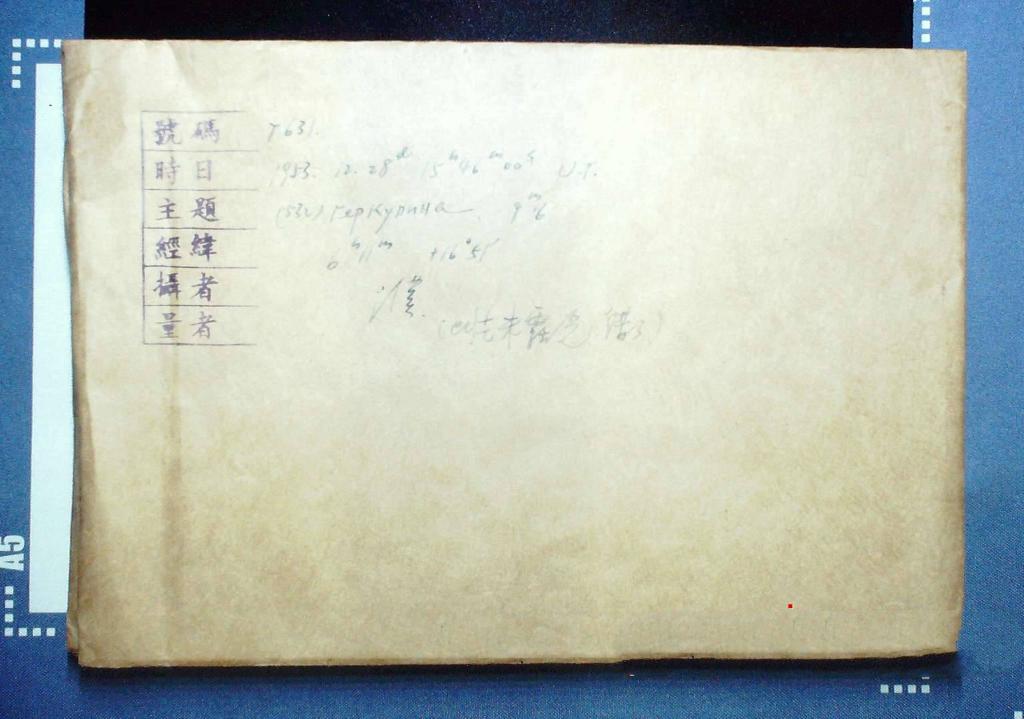 號碼 T631.
時日 1953. 12. 28ᵈ 15ʰ46ᵐ00ˢ U.T.
主題 (532) Геркулина 9ᵐ.6
經緯 6ʰ11ᵐ +16°51'
攝者
量者
A5